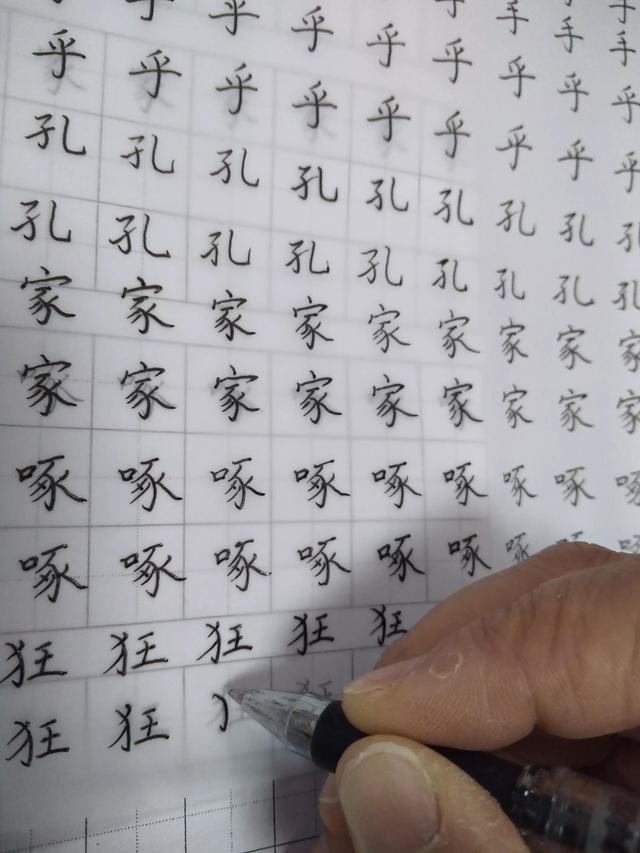 手 手 手
乎 乎 乎 乎 乎 乎 乎
乎 乎 乎 乎 乎 乎 乎 乎 乎
孔 孔 孔 孔 孔 孔 孔 孔 孔
孔 孔 孔 孔 孔 孔 孔 孔 孔
家 家 家 家 家 家 家 家 家
家 家 家 家 家 家 家 家 家
啄 啄 啄 啄 啄 啄 啄 啄 啄
啄 啄 啄 啄 啄 啄 啄
狂 狂 狂 狂 狂
狂 狂